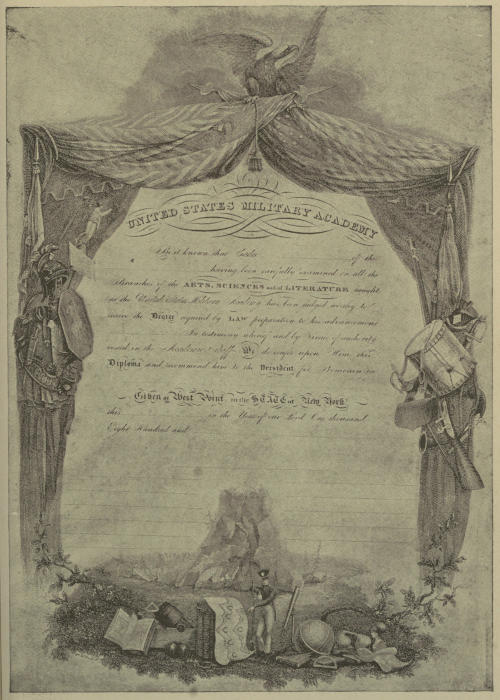 UNITED STATES MILITARY ACADEMY
Be it known that Cadet of the
having been carefully examined on all the
Branches of the ARTS, SCIENCES and of LITERATURE taught
at the United States Military Academy has been judged worthy to
receive the Degree required by LAW preparatory to his advancement
In testimony whereof and by virtue of authority
vested in the Academic Staff We do confer upon Him this
Diploma and recommend him to the President for Promotion in
Given at West Point in the STATE of New York
this in the Year of our Lord One thousand
Eight Hundred and